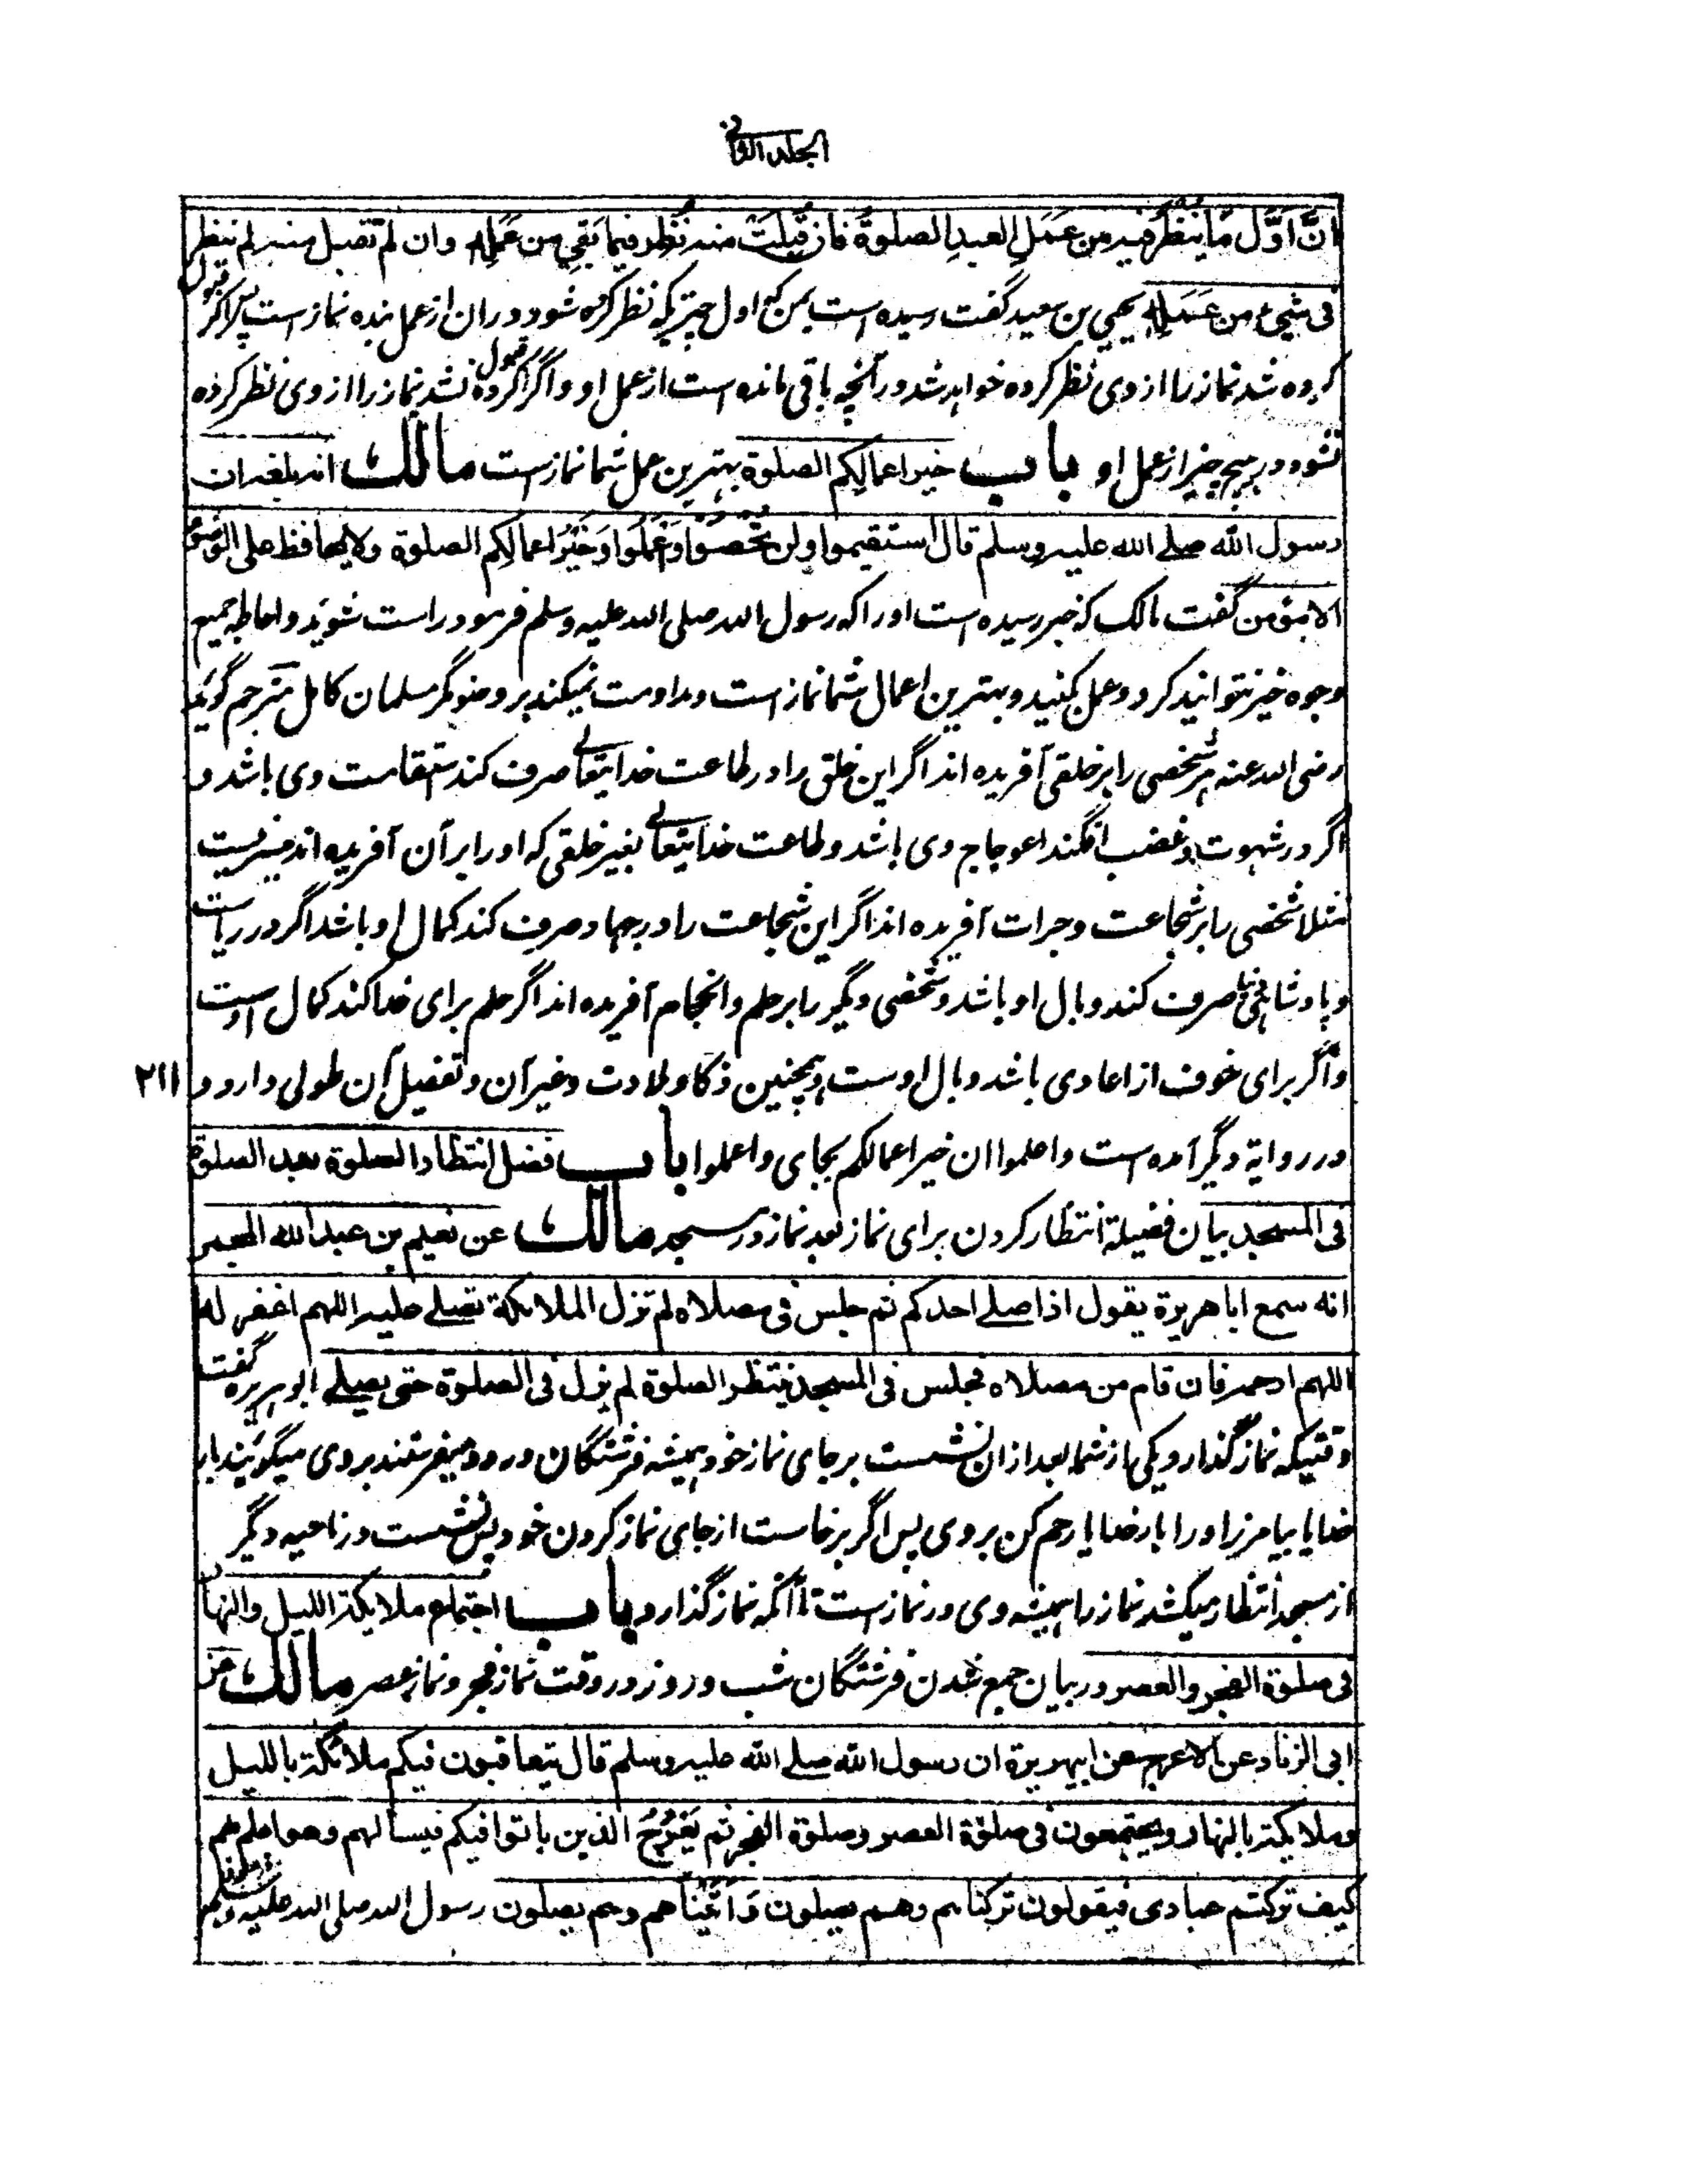 الجلد الثانی
اِنَّ اَوَّلَ مَا یُنْظَرُ فیه من عَمَلِ العبدِ الصلوةُ فان قُبِلَتْ منه نُظِر فیما بَقِیَ من عَمَلِه وان لم تقبل منه لم ینظر
فی شیء من عَمَلِه یحیی بن سعید گفت رسیده است بمن که اول چیزیکه نظر کرده شود در ان از عمل بنده نماز است پس اگر قبول
کرده شد نماز را از وی نظر کرده خواهد شد در آنچه باقی مانده است از عمل او و اگر قبول کرده نشد نماز را از وی نظر کرده
نشود در هیچ چیز از عمل او باب خیر اعمالکم الصلوة بهترین عمل شما نماز است مالک انه بلغه ان
رسول الله صلے الله علیه وسلم قال استقیموا ولن تُحْصُوْا وَعْمَلُوا وَخَیْرُ اعمالِکم الصلوة ولا یحافظ علی الوضوء
الا مؤمن گفت مالک که خبر رسیده است اورا که رسول الله صلی الله علیه وسلم فرمود راست شوید و احاطه جمیع
وجوه خیر نتوانید کرد و عمل کنید و بهترین اعمال شما نماز است و مداومت نمیکند بر وضو مگر مسلمان کامل مترجم گوید
رضی الله عنه هر شخصی را بر خلقی آفریده اند اگر این خلق را در طاعت خدایتعالی صرف کند استقامت وی باشد و
اگر در شهوت و غضب افگند اعوجاج وی باشد و طاعت خدایتعالی بغیر خلقی که اورا بر آن آفریده اند میسر نیست
مثلا شخصی را بر شجاعت و جرات آفریده اند اگر این شجاعت را در جهاد صرف کند کمال او باشد اگر در ریاست
و پادشاهی صرف کند وبال او باشد و شخصی دیگر را بر حلم و انجام آفریده اند اگر حلم برای خدا کند کمال اوست
و اگر برای خوف از اعادی باشد وبال اوست و همچنین ذکا و لادت و غیر آن و تفصیل آن طولی دارد و
۲۱۱
در روایة دیگر آمده است واعلموا ان خیر اعمالکم بجای واعملوا باب فضل انتظار الصلوة بعد الصلوة
فی المسجد بیان فضیلة انتظار کردن برای نماز بعد نماز در مسجد مالک عن نعیم بن عبد الله المجمر
انه سمع ابا هریرة یقول اذا صلے احدکم ثم جلس فی مصلاه لم تزل الملائکة تصلے علیه اللهم اغفر له
اللهم ارحمه فان قام من مصلاه فجلس فی المسجد ینتظر الصلوة لم یزل فی الصلوة حتی یصلے ابو هریره گفت
وقتیکه نماز گذارد یکی از شما بعد از ان نشست بر جای نماز خود همیشه فرشتگان درود میفرستند بر وی میگویند بار
خدایا بیامرز اورا بار خدایا رحم کن بر وی پس اگر برخاست از جای نماز کردن خود پس نشست در ناحیه دیگر
از مسجد انتظار میکشد نماز را همیشه وی در نماز است تا آنکه نماز گذارد باب اجتماع ملایکة اللیل والنهار
فی صلوة الفجر والعصر در بیان جمع شدن فرشتگان شب و روز در وقت نماز فجر و نماز عصر مالک عن
ابی الزناد عن الاعرج عن ابیهریرة ان رسول الله صلے الله علیه وسلم قال یتعاقبون فیکم ملائکة باللیل
وملایکة بالنهار ویجتمعون فی صلوة العصر وصلوة الفجر ثم یَعْرُجُ الذین باتوا فیکم فیسألهم وهو اعلم بهم
کیف ترکتم عبادی فیقولون ترکناهم وهم یصلون وَاَتَیْنَاهم وهم یصلون رسول الله صلی الله علیه وسلم